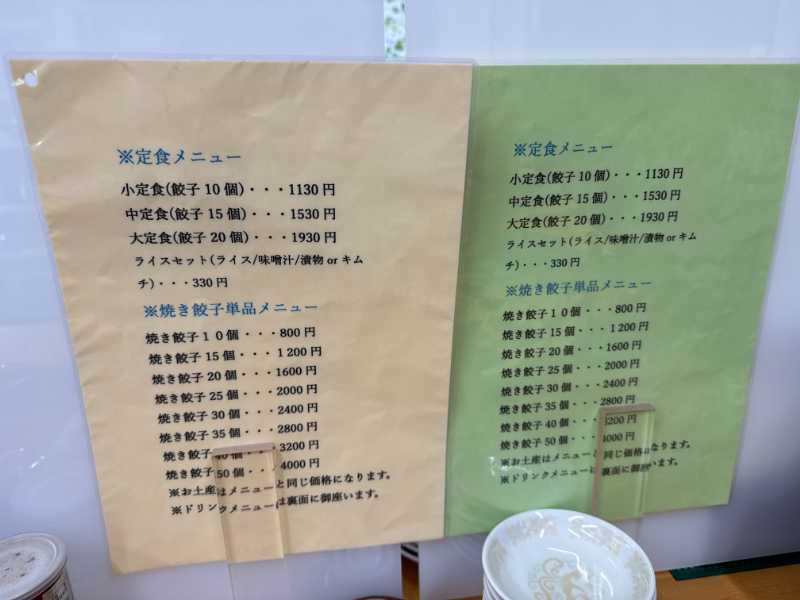 ※定食メニュー
小定食(餃子 10 個)・・・1130 円
中定食(餃子 15 個)・・・1530 円
大定食(餃子 20 個)・・・1930 円
ライスセット(ライス/味噌汁/漬物 or キム
チ)・・・330 円
※焼き餃子単品メニュー
焼き餃子１０個・・・800 円
焼き餃子 15 個・・・１200 円
焼き餃子 20 個・・・1600 円
焼き餃子 25 個・・・2000 円
焼き餃子 30 個・・・2400 円
焼き餃子 35 個・・・2800 円
焼き餃子 40 個・・・3200 円
焼き餃子 50 個・・・4000 円
※お土産はメニューと同じ価格になります。
※ドリンクメニューは裏面に御座います。
※定食メニュー
小定食(餃子 10 個)・・・1130 円
中定食(餃子 15 個)・・・1530 円
大定食(餃子 20 個)・・・1930 円
ライスセット(ライス/味噌汁/漬物 or キム
チ)・・・330 円
※焼き餃子単品メニュー
焼き餃子１０個・・・800 円
焼き餃子 15 個・・・１200 円
焼き餃子 20 個・・・1600 円
焼き餃子 25 個・・・2000 円
焼き餃子 30 個・・・2400 円
焼き餃子 35 個・・・2800 円
焼き餃子 40 個・・・3200 円
焼き餃子 50 個・・・4000 円
※お土産はメニューと同じ価格になります。
※ドリンクメニューは裏面に御座います。